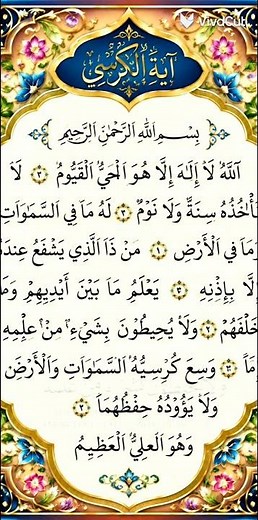 VivaCut
آية الكرسي
بِسْمِ اللَّهِ الرَّحْمَٰنِ الرَّحِيمِ
اللَّهُ لَا إِلَٰهَ إِلَّا هُوَ الْحَيُّ الْقَيُّومُ ۝ لَا
تَأْخُذُهُ سِنَةٌ وَلَا نَوْمٌ ۝ لَهُ مَا فِي السَّمَٰوَاتِ
وَمَا فِي الْأَرْضِ ۝ مَنْ ذَا الَّذِي يَشْفَعُ عِنْدَ
إِلَّا بِإِذْنِهِ ۝ يَعْلَمُ مَا بَيْنَ أَيْدِيهِمْ وَمَ
خَلْفَهُمْ ۝ وَلَا يُحِيطُونَ بِشَيْءٍ مِنْ عِلْمِهِ
مَا ۝ وَسِعَ كُرْسِيُّهُ السَّمَٰوَاتِ وَالْأَرْضَ
وَلَا يَؤُودُهُ حِفْظُهُمَا ۝
وَهُوَ الْعَلِيُّ الْعَظِيمُ